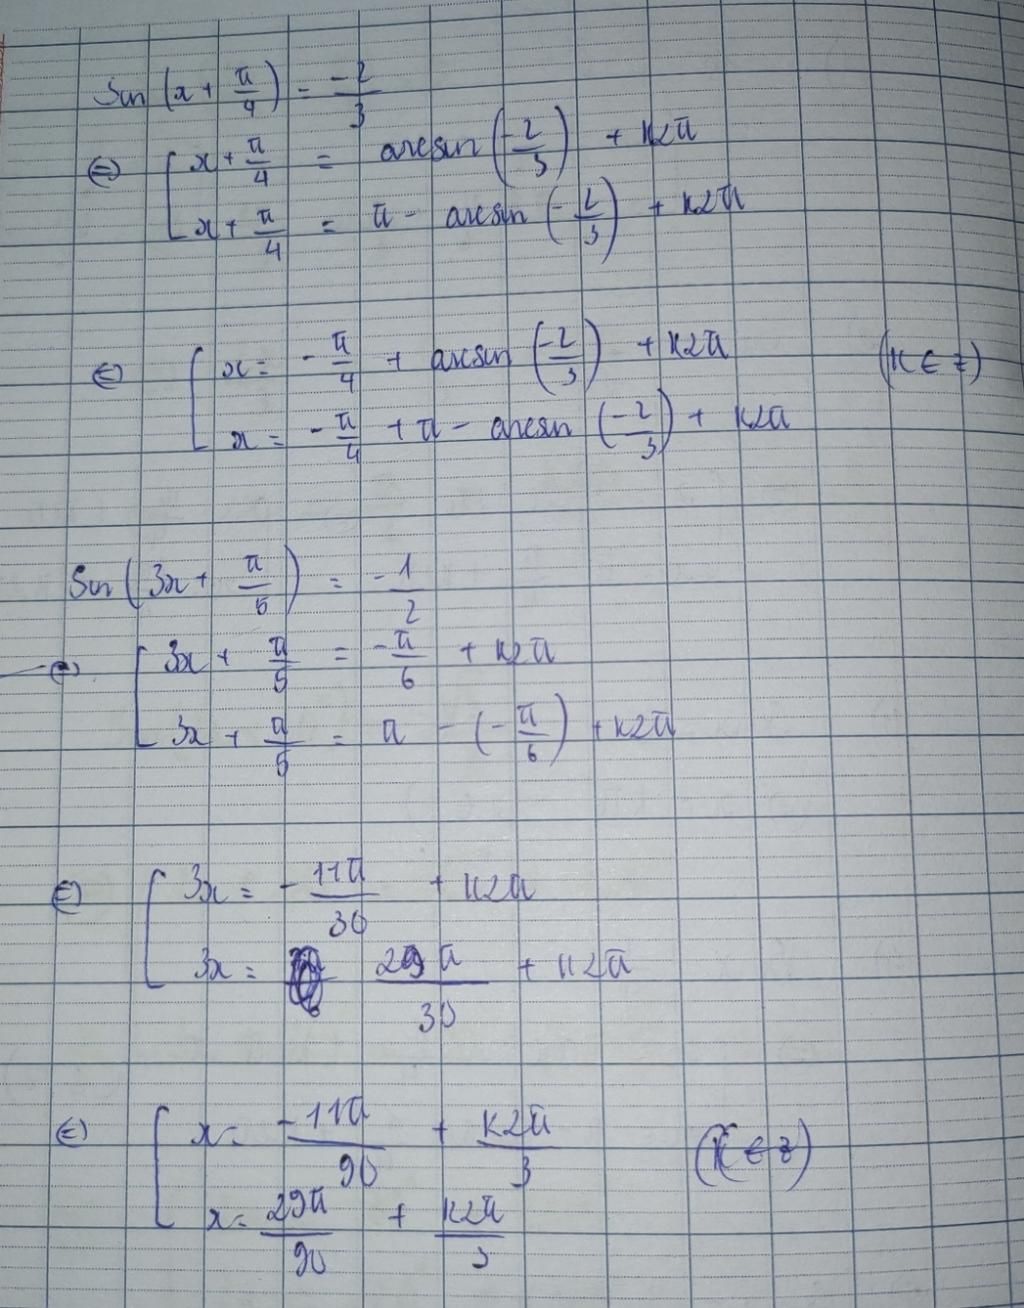 Sin (x + π/4) = -2/3
⇔ [ x + π/4 = arcsin (-2/3) + k2π
x + π/4 = π - arcsin (-2/3) + k2π
⇔ [ x = -π/4 + arcsin (-2/3) + k2π (k ∈ z)
x = -π/4 + π - arcsin (-2/3) + k2π
Sin (3x + π/5) = -1/2
⇔ [ 3x + π/5 = -π/6 + k2π
3x + π/5 = π - (-π/6) + k2π
⇔ [ 3x = -11π/30 + k2π
3x = 29π/30 + k2π
⇔ [ x = -11π/90 + k2π/3 (k ∈ z)
x = 29π/90 + k2π/3